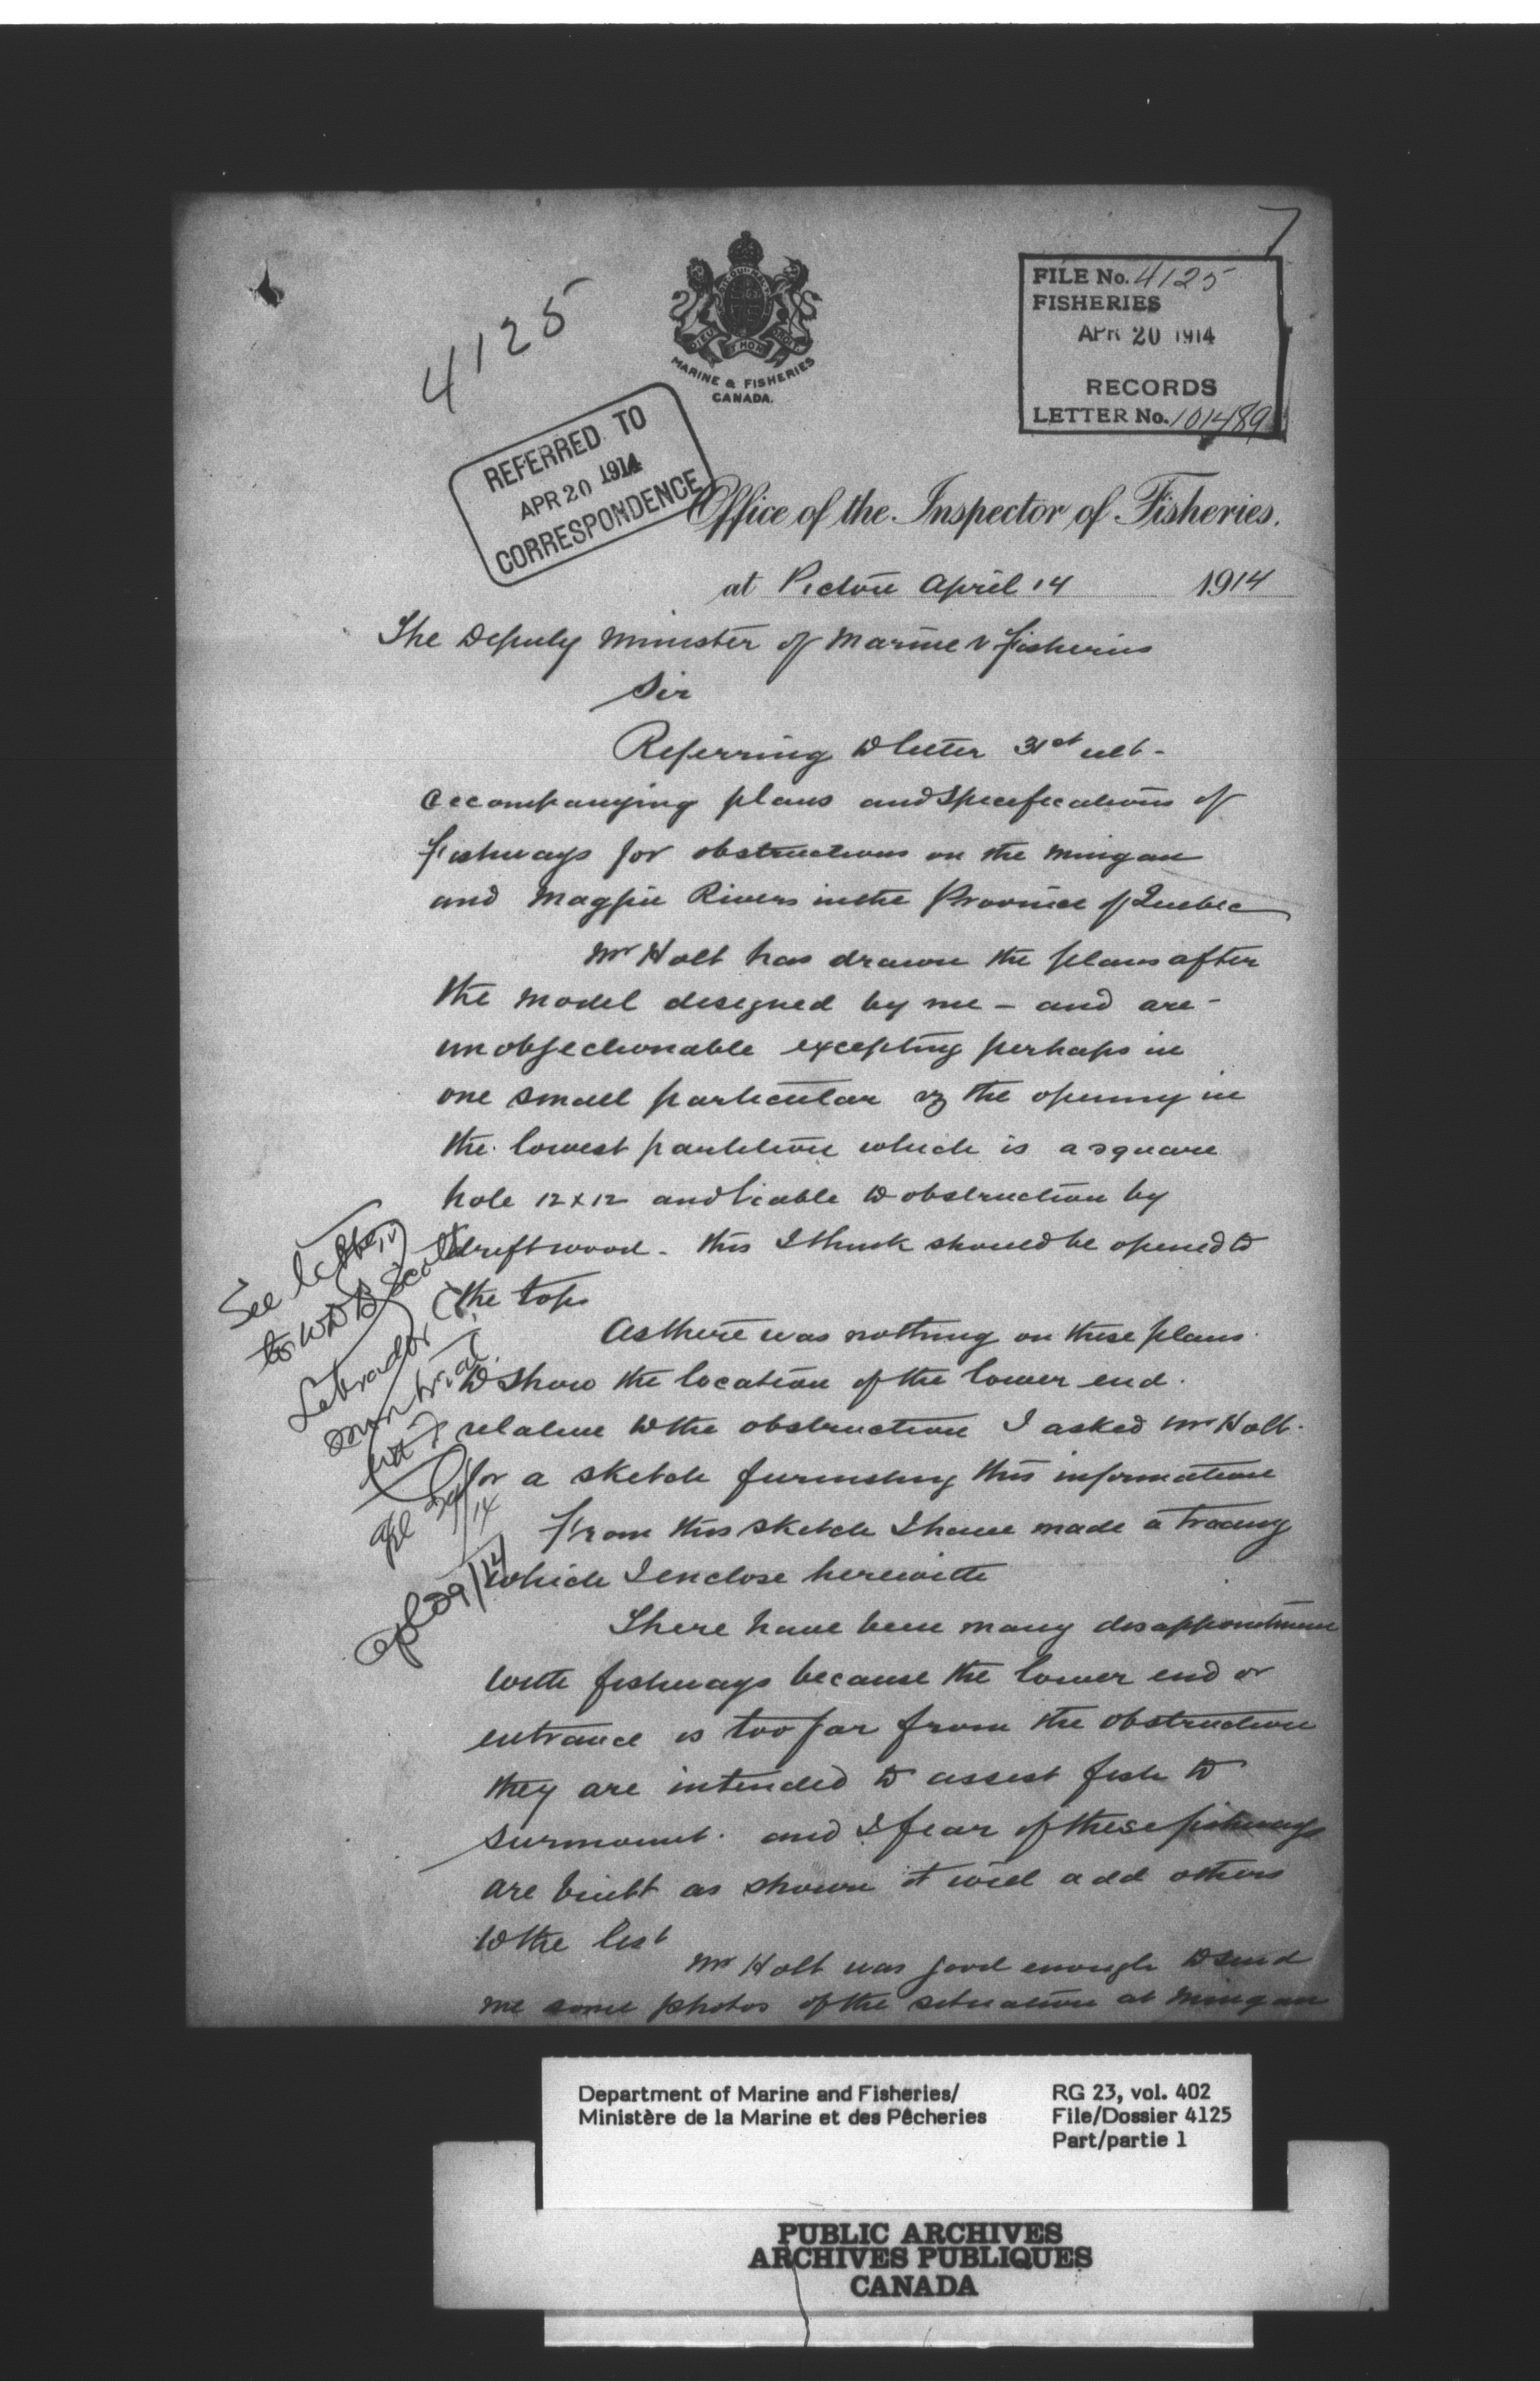 7
4125
FILE No. 4125
FISHERIES
APR 20 1914
RECORDS
LETTER No. 101489
DIEU ET MON DROIT
MARINE & FISHERIES
CANADA.
REFERRED TO
APR 20 1914
CORRESPONDENCE
Office of the Inspector of Fisheries.
at Pictou April 14 1914
The Deputy Minister of Marine & Fisheries
Sir
Referring to letter 31st ult-
accompanying plans and specifications of
fishways for obstructions on the Mingan
and Magpie Rivers in the Province of Quebec
Mr Holt has drawn the plans after
the model designed by me - and are -
unobjectionable excepting perhaps in
one small particular vz the opening in
the lowest partition which is a square
hole 12 x 12 and liable to obstruction by
driftwood - this I think should be opened to
the top
As there was nothing on these plans
to show the location of the lower end
relative to the obstruction I asked Mr Holt
for a sketch furnishing this information
From this sketch I have made a tracing
which I enclose herewith
There have been many disappointment
with fishways because the lower end or
entrance is too far from the obstruction
they are intended to assist fish to
surmount. and I fear if these fishways
are built as shown it will add others
to the list
Mr Holt was good enough to send
me some photos of the situation at Mingan
See letter
to W D B Scott
Labrador Co
Montreal
apl 29/14
apl 29/14
Department of Marine and Fisheries/
Ministère de la Marine et des Pêcheries
RG 23, vol. 402
File/Dossier 4125
Part/partie 1
PUBLIC ARCHIVES
ARCHIVES PUBLIQUES
CANADA